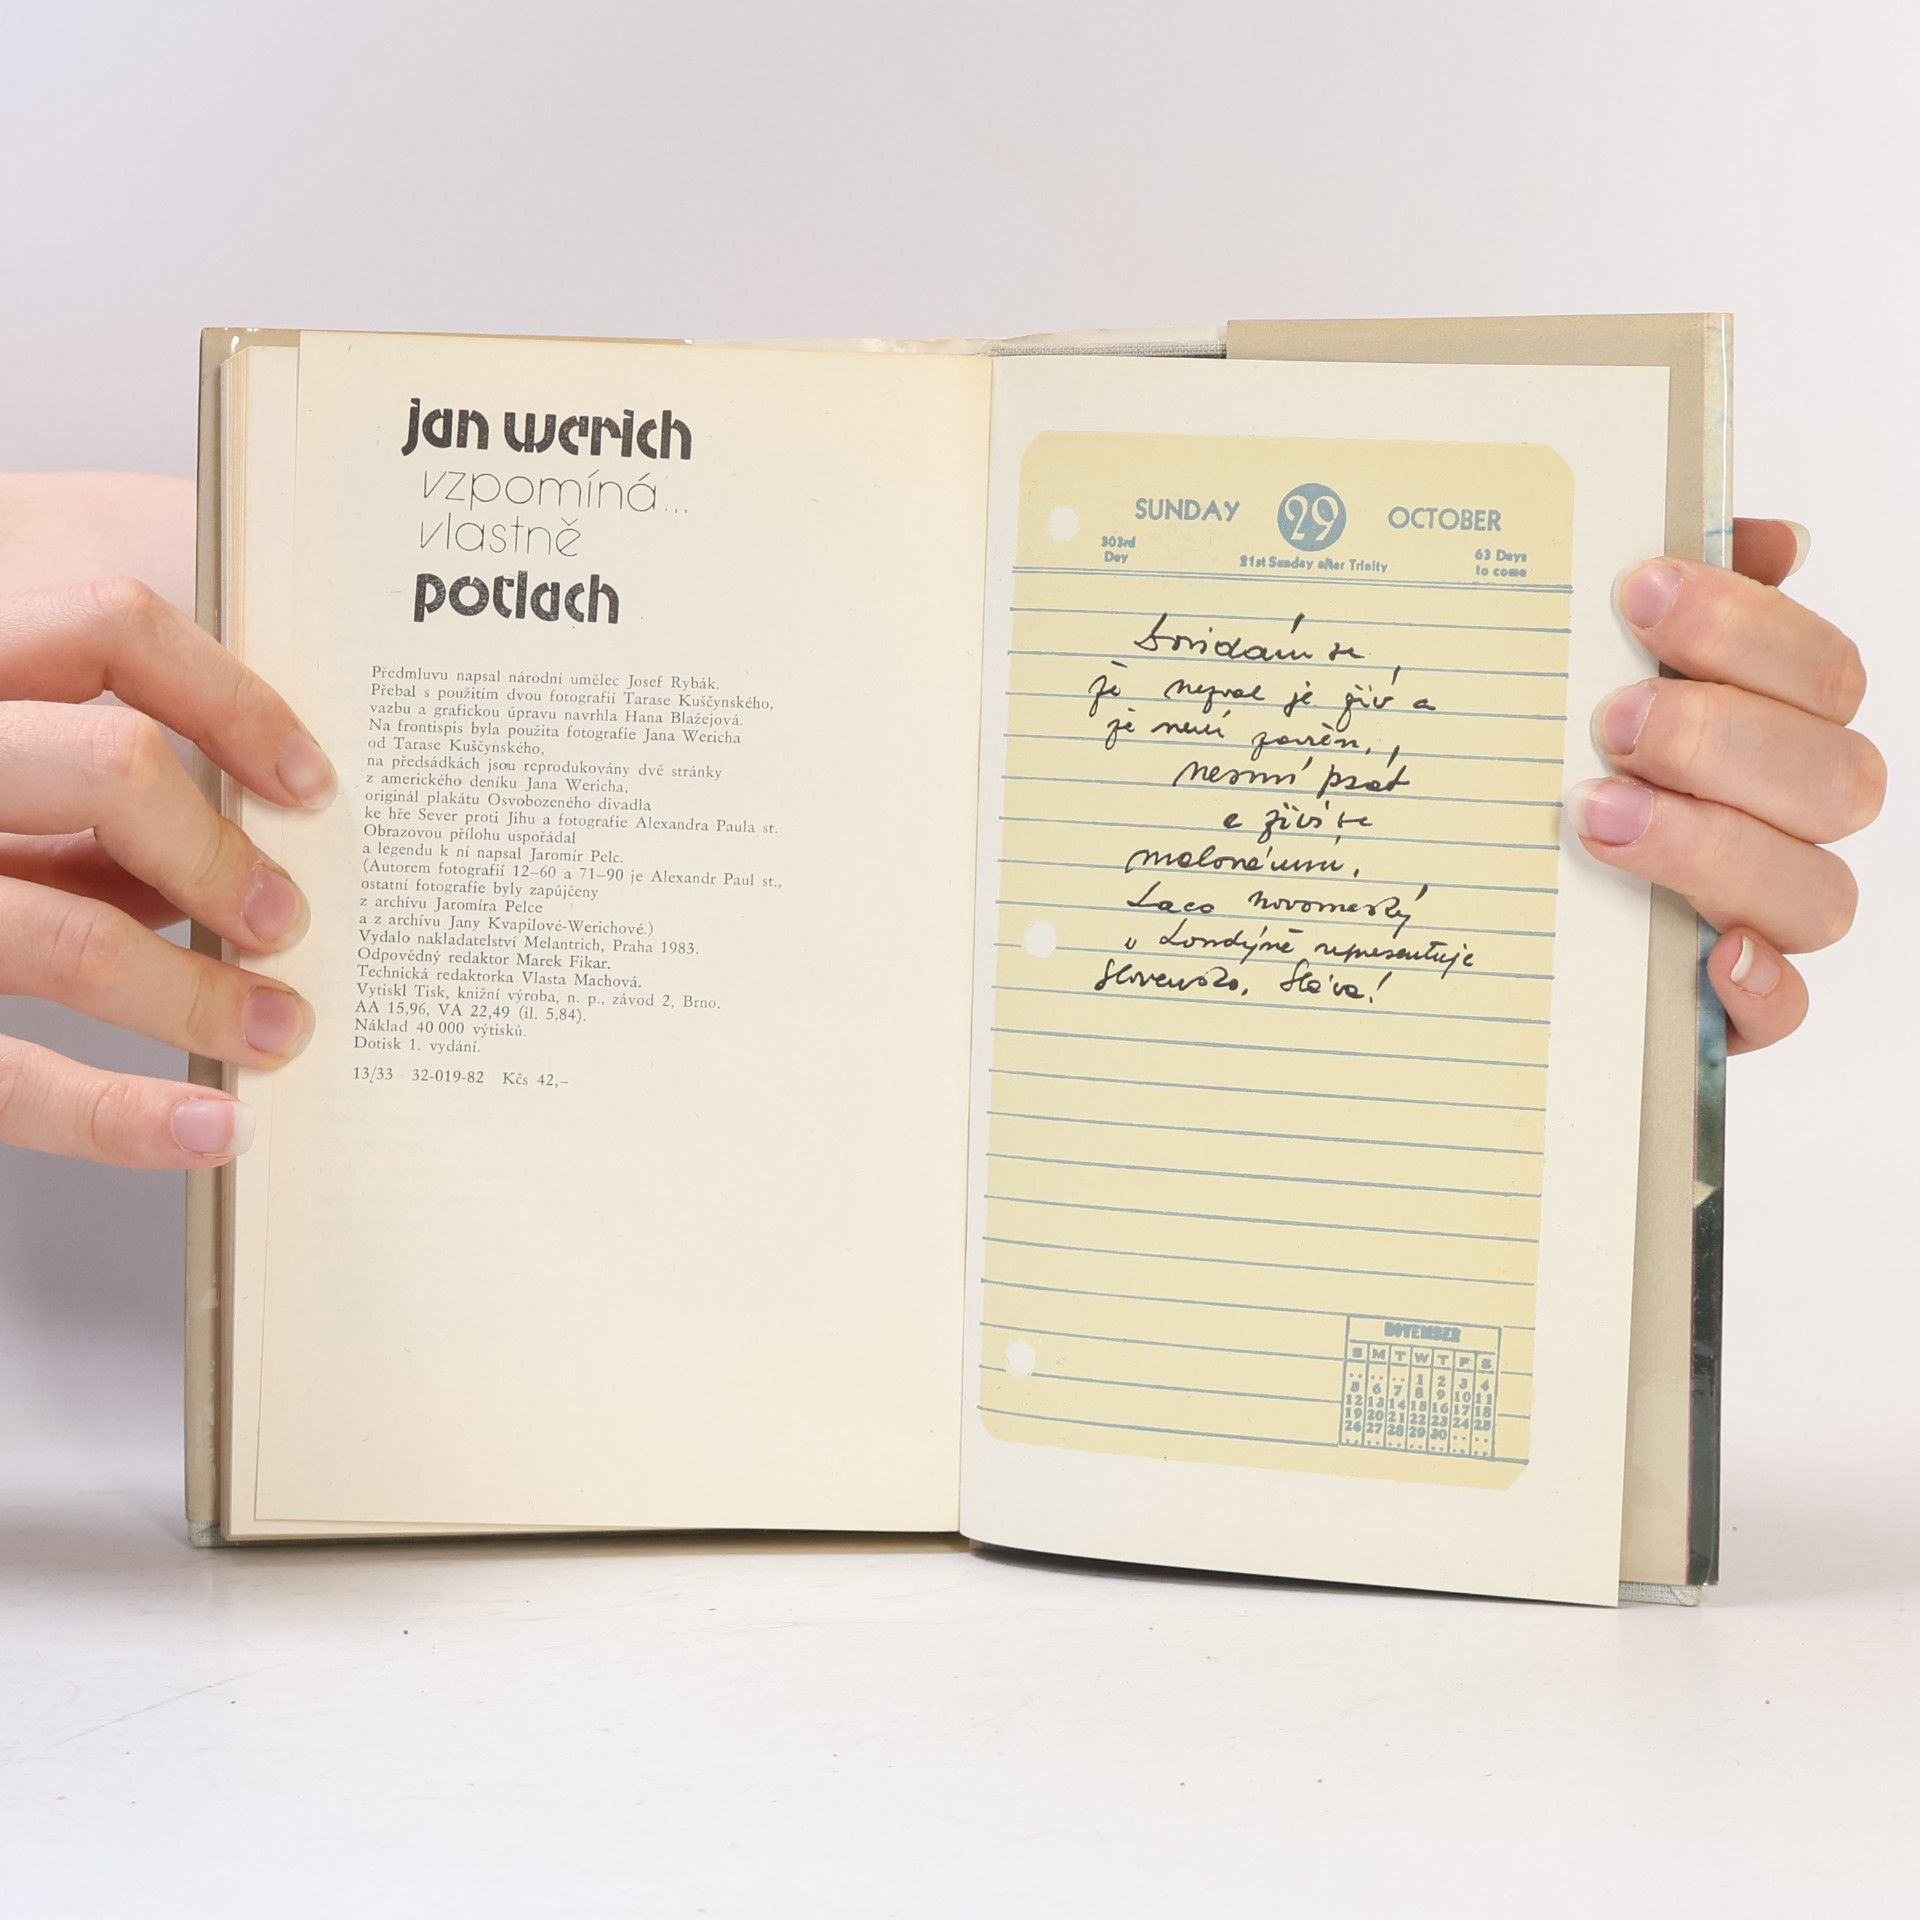 jan werich
vzpomíná...
vlastně
potlach
Předmluvu napsal národní umělec Josef Rybák.
Přebal s použitím dvou fotografií Tarase Kuščynského,
vazbu a grafickou úpravu navrhla Hana Blažejová.
Na frontispis byla použita fotografie Jana Wericha
od Tarase Kuščynského,
na předsádkách jsou reprodukovány dvě stránky
z amerického deníku Jana Wericha,
originál plakátu Osvobozeného divadla
ke hře Sever proti Jihu a fotografie Alexandra Paula st.
Obrazovou přílohu uspořádal
a legendu k ní napsal Jaromír Pelc.
(Autorem fotografií 12–60 a 71–90 je Alexandr Paul st.,
ostatní fotografie byly zapůjčeny
z archívu Jaromíra Pelce
a z archívu Jany Kvapilové-Werichové.)
Vydalo nakladatelství Melantrich, Praha 1983.
Odpovědný redaktor Marek Fikar.
Technická redaktorka Vlasta Machová.
Vytiskl Tisk, knižní výroba, n. p., závod 2, Brno.
AA 15,96, VA 22,49 (il. 5,84).
Náklad 40 000 výtisků.
Dotisk 1. vydání.
13/33 32-019-82 Kčs 42,–
SUNDAY 29 OCTOBER
303rd Day
21st Sunday after Trinity
63 Days to come
Dovídám se,
že Nezval je živ a
že není zavřen,
nesmí psát
a živí se
malováním.
Laco Novomeský
v Londýně representuje
Slovensko. Sláva!
NOVEMBER
S M T W T F S
.. .. .. 1 2 3 4
5 6 7 8 9 10 11
12 13 14 15 16 17 18
19 20 21 22 23 24 25
26 27 28 29 30 .. ..
.. .. .. .. .. .. ..